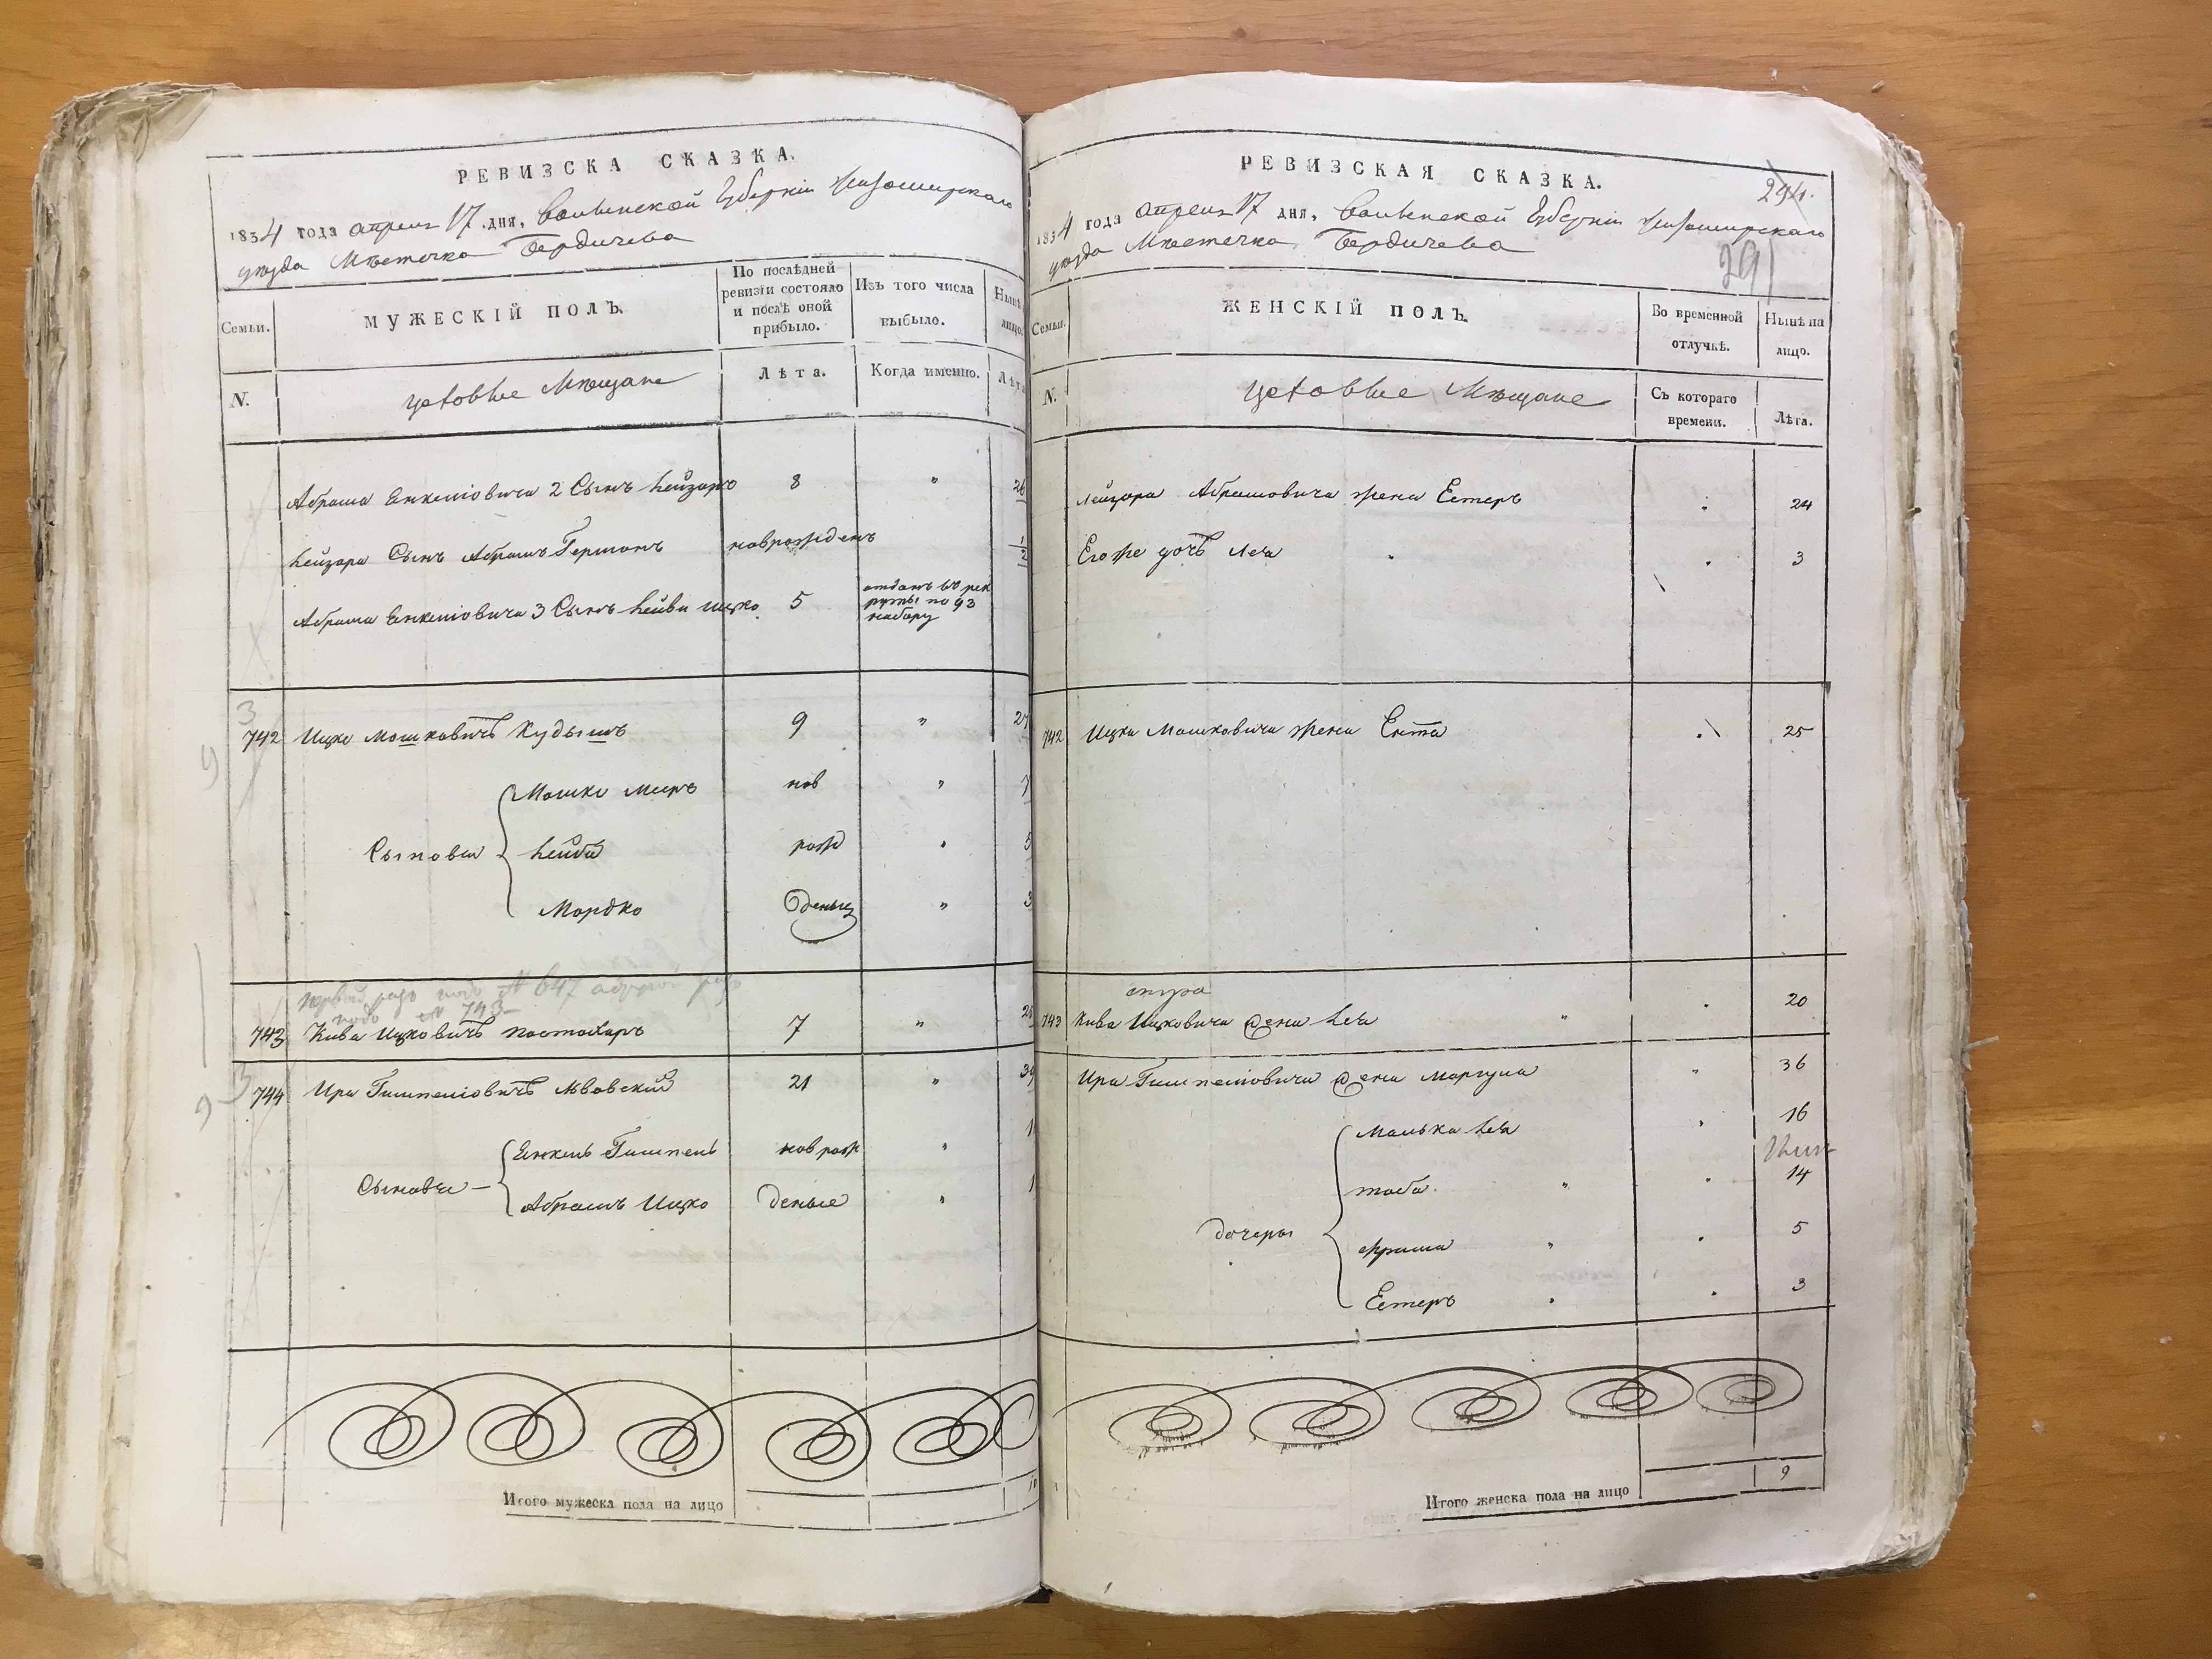 РЕВИЗСКА СКАЗКА.
1834 года апреля 17 дня, Волынской Губерніи Житомирскаго
уезда Местечка Бердичева
Семьи.
МУЖЕСКІЙ ПОЛЪ.
По послѣдней
ревизіи состояло
и послѣ оной
прибыло.
Изъ того числа
выбыло.
N.
цеховые Мещане
Лѣта.
Когда именно.
Абрама Янкелiовича 2 Сынъ Лейзоръ 8 "
Лейзора Сынъ Абрамъ Гершонъ новорожденъ
Абрама Янкелiовича 3 Сынъ Лейви Ицко 5
отданъ въ рек
руты по 93
набору
742 Ицко Мошковичъ Кудышъ 9 " 27
Мошко Меиръ нов " 7
Сыновья Лейба рож " 5
Мордко Деныя " 3
первый разъ подъ N 647 а другой разъ
подъ N 743
743 Кива Ицковичъ 7 "
744 Ира Гимпелiовичъ Львовскiй 21 " 39
Янкель Гимпель новрож "
Сыновья
Абрамъ Ицко деные "
Итого мужеска пола на лицо
10
РЕВИЗСКАЯ СКАЗКА.
294.
291
1834 года апреля 17 дня, Волынской Губерніи Житомирскаго
уезда Местечка Бердичева
Семьи.
ЖЕНСКІЙ ПОЛЪ.
Во временной
отлучкѣ.
Нынѣ на
лицо.
N.
цеховые Мещане
Съ котораго
времени.
Лѣта.
Лейзора Абрамовича жена Естеръ 24
Егоже дочъ Леа " 3
742 Ицка Мошковича жена Ента 25
743 Кива Ицковича жена Леа " 20
Ира Гимпелiовича жена Маргуля " 36
Малька Леа " 16
тоба " 14
дочеры
Фрима " 5
Естеръ " 3
Итого женска пола на лицо
9